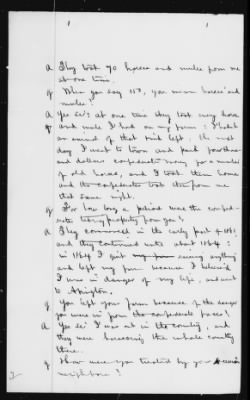 A They took 70 horses and mules from me
at one time.
Q When you say 150, you mean horses and
mules?
A Yes sir; at one time they took every horse
and mule I had on my farm; I hadn't
an animal of that kind left. The next
day I went to town and paid four thou-
sand dollars confederate money for a number
of old horses, and I took them home
and the confederates took them from me
that same night.
Q For how long a period was the confed-
erates taking property from you?
A They commenced in the early part of '61,
and they continued until about 1864;
in 1864 I quit my farm every thing
and left my farm because I believed
I was in danger of my life, and went
to Abington.
Q You left your farm because of the danger
you were in from the confederate forces?
A Yes sir I was out in the county, and
they were harassing the whole country
there.
Q How were you treated by your
neighbors?
2